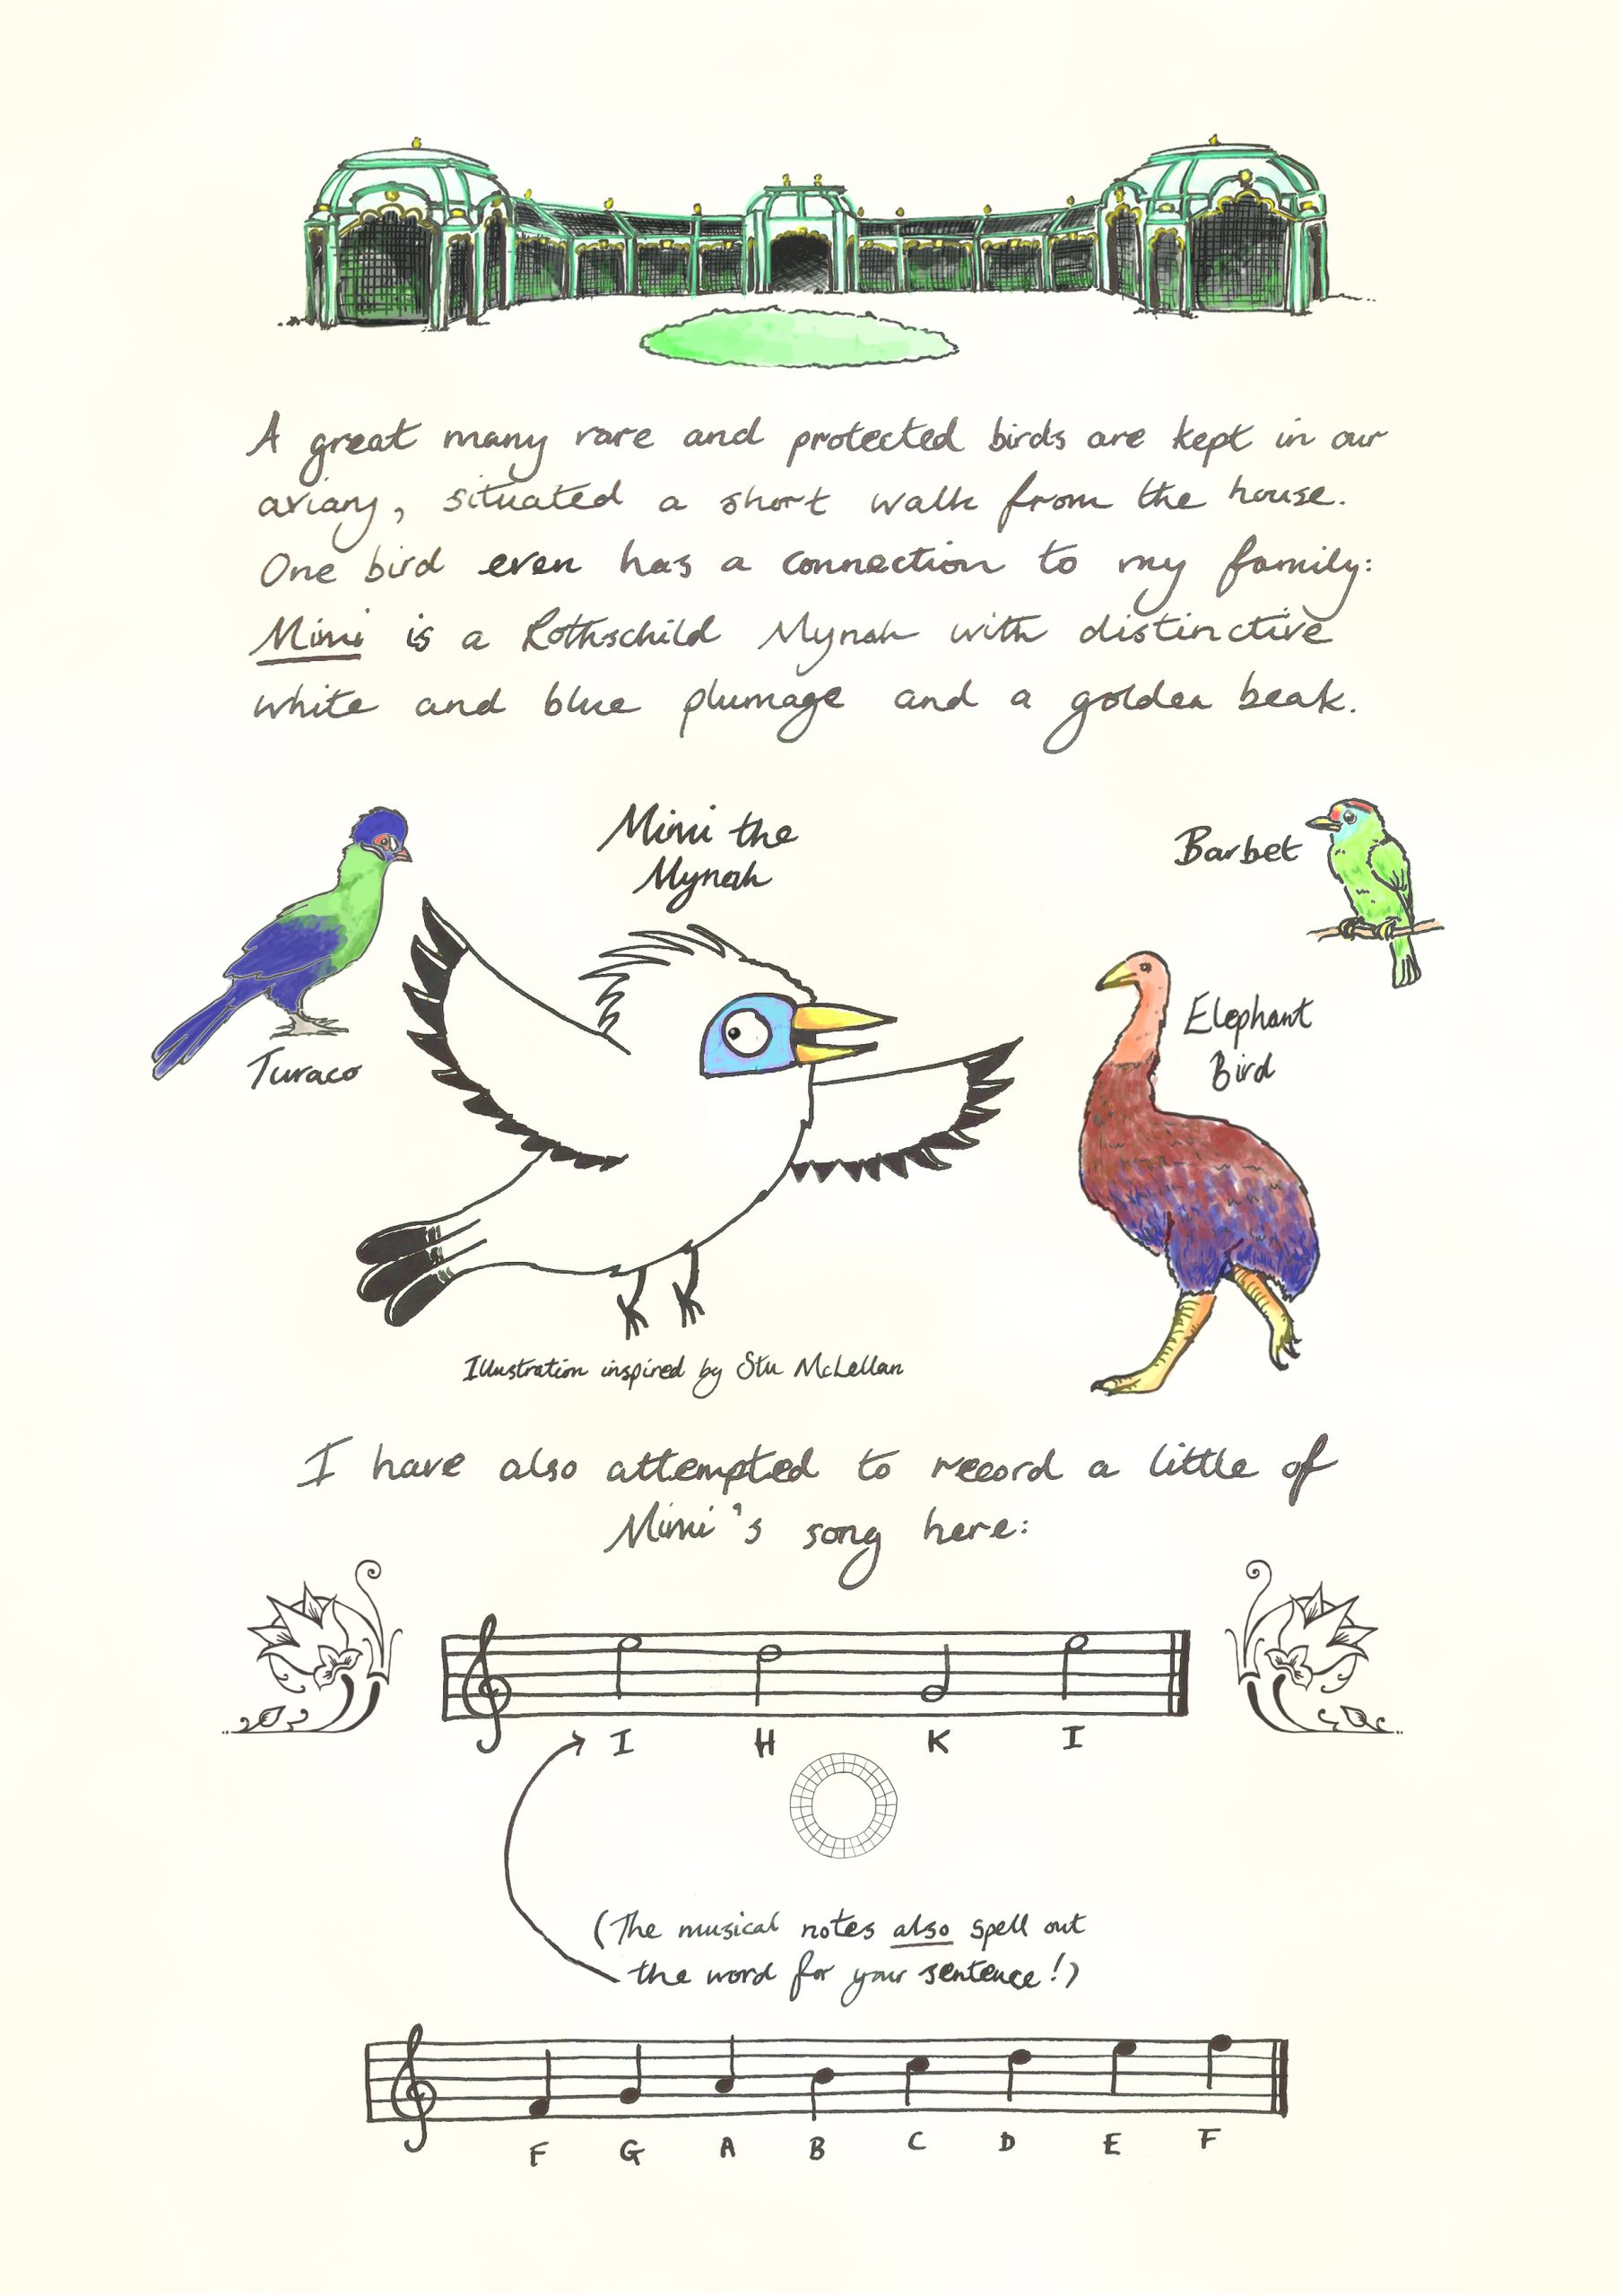 A great many rare and protected birds are kept in our
aviary, situated a short walk from the house.
One bird even has a connection to my family:
Mimi is a Rothschild Mynah with distinctive
white and blue plumage and a golden beak.
Mimi the
Mynah
Barbet
Turaco
Elephant
Bird
Illustration inspired by Stu McLellan
I have also attempted to record a little of
Mimi's song here:
I H K I
(The musical notes also spell out
the word for your sentence!)
F G A B C D E F